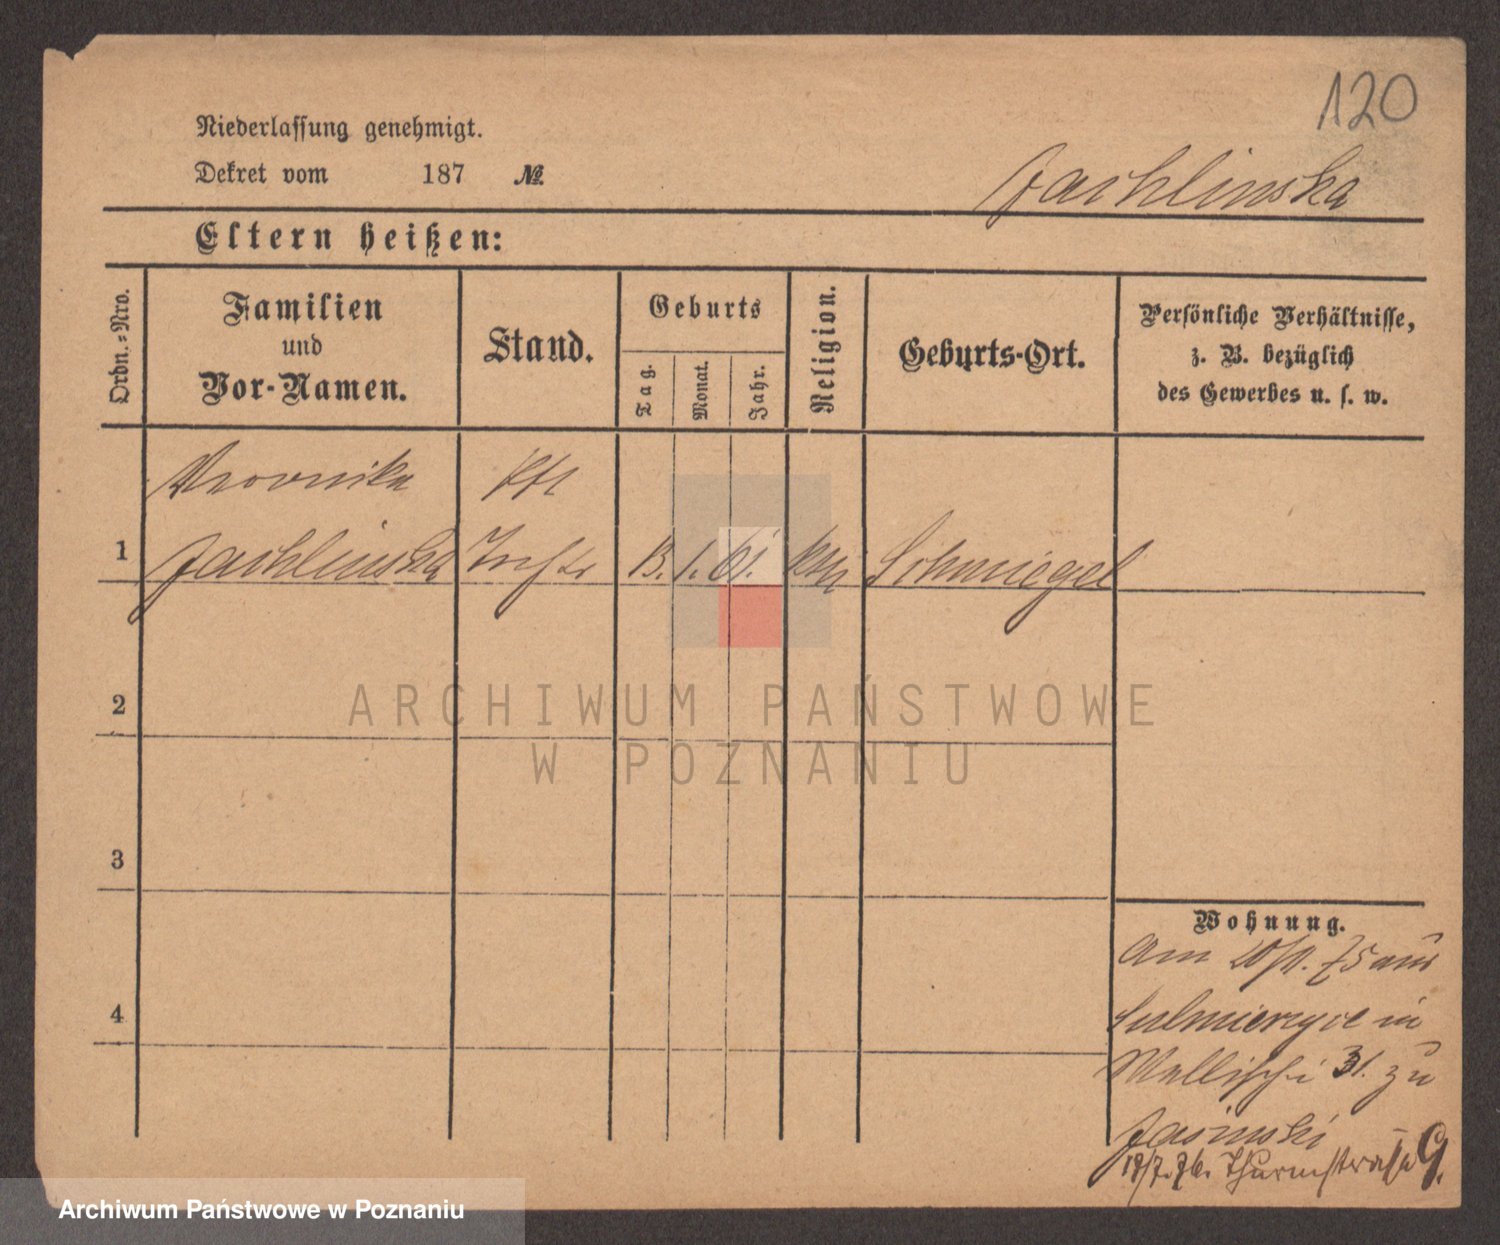 120
Niederlassung genehmigt.
Dekret vom 187 №
Jachlinska
Eltern heißen:
Ordn.-Nro.
Familien
und
Vor-Namen.
Stand.
Geburts
Tag.
Monat.
Jahr.
Religion.
Geburts-Ort.
Persönliche Verhältnisse,
z. B. bezüglich
des Gewerbes u. s. w.
Veronika
1 Jachlinska 13. 1. 61. Schmiegel
2
3
4
Wohnung.
Am 20/11. 75 aus
Sulmierzyce in
Wallischei 31. zu
Jasinski
19/7. 76. Thurmstraße 9.
ARCHIWUM PAŃSTWOWE
W POZNANIU
Archiwum Państwowe w Poznaniu